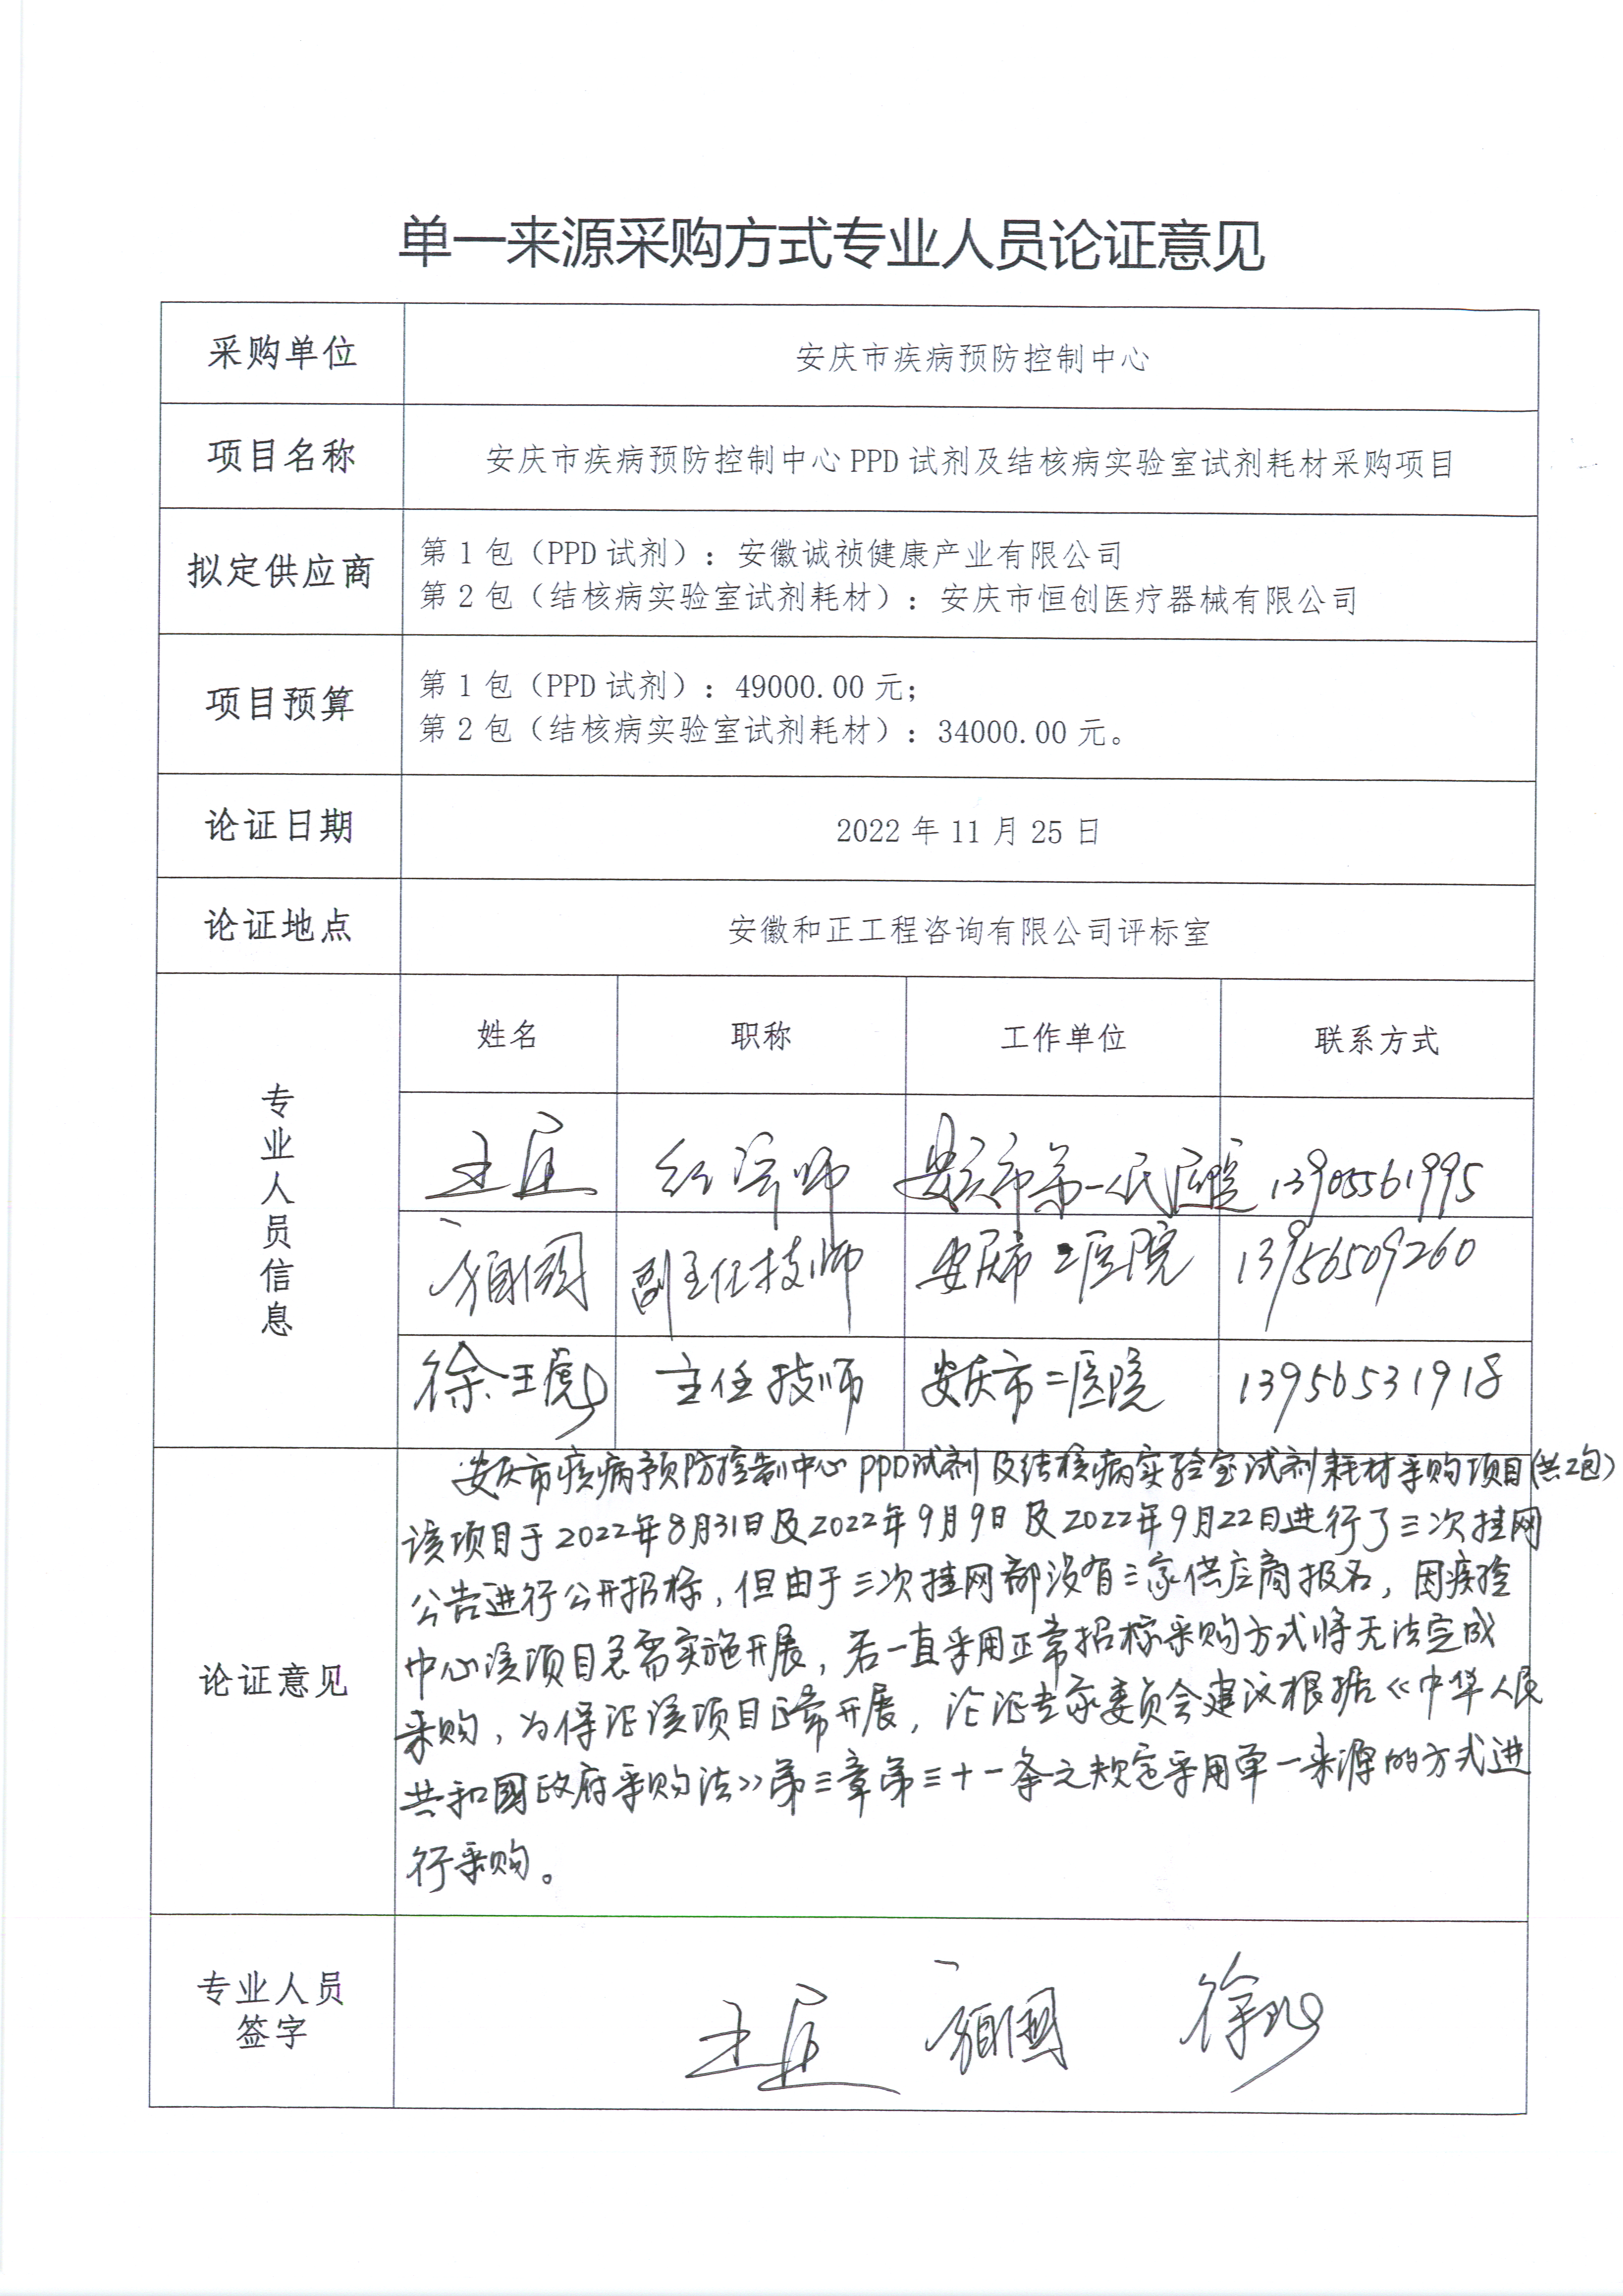 单一来源采购方式专业人员论证意见
采购单位
安庆市疾病预防控制中心
项目名称
安庆市疾病预防控制中心PPD试剂及结核病实验室试剂耗材采购项目
拟定供应商
第1包（PPD试剂）：安徽诚祯健康产业有限公司
第2包（结核病实验室试剂耗材）：安庆市恒创医疗器械有限公司
项目预算
第1包（PPD试剂）：49000.00元；
第2包（结核病实验室试剂耗材）：34000.00元。
论证日期
2022年11月25日
论证地点
安徽和正工程咨询有限公司评标室
专业人员信息
姓名 职称 工作单位 联系方式
经济师 安庆市第一人民医院 13905561995
副主任技师 安庆市二医院 13956509260
徐王虎 主任技师 安庆市二医院 13956531918
论证意见
安庆市疾病预防控制中心PPD试剂及结核病实验室试剂耗材采购项目(共2包)
该项目于2022年8月31日及2022年9月9日及2022年9月22日进行了三次挂网
公告进行公开招标，但由于三次挂网都没有三家供应商报名，因疾控
中心该项目急需实施开展，若一直采用正常招标采购方式将无法完成
采购，为保证该项目正常开展，论证专家委员会建议根据《中华人民
共和国政府采购法》第三章第三十一条之规定采用单一来源的方式进
行采购。
专业人员
签字